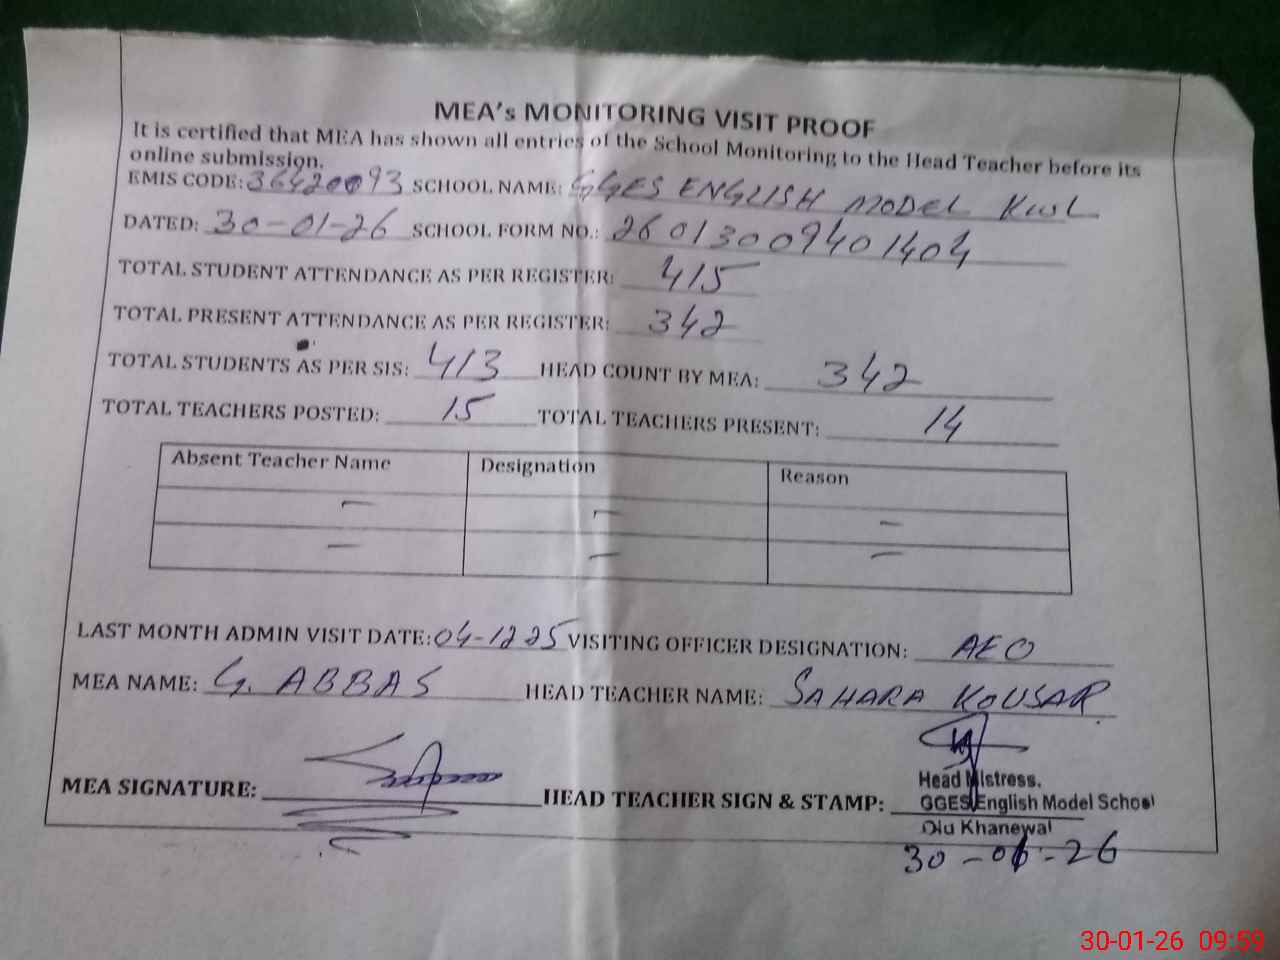 MEA's MONITORING VISIT PROOF
It is certified that MEA has shown all entries of the School Monitoring to the Head Teacher before its
online submission.
EMIS CODE: 36420093 SCHOOL NAME: GGES ENGLISH MODEL KWL
DATED: 30-01-26 SCHOOL FORM NO.: 26013009401404
TOTAL STUDENT ATTENDANCE AS PER REGISTER: 415
TOTAL PRESENT ATTENDANCE AS PER REGISTER: 342
TOTAL STUDENTS AS PER SIS: 413 HEAD COUNT BY MEA: 342
TOTAL TEACHERS POSTED: 15 TOTAL TEACHERS PRESENT: 14
Absent Teacher Name Designation Reason
— — —
— — —
LAST MONTH ADMIN VISIT DATE: 04-12 25 VISITING OFFICER DESIGNATION: AEO
MEA NAME: G. ABBAS HEAD TEACHER NAME: SAHARA KOUSAR
MEA SIGNATURE: HEAD TEACHER SIGN & STAMP:
Head Mistress.
GGES English Model School
Old Khanewal
30-01-26
30-01-26 09:59